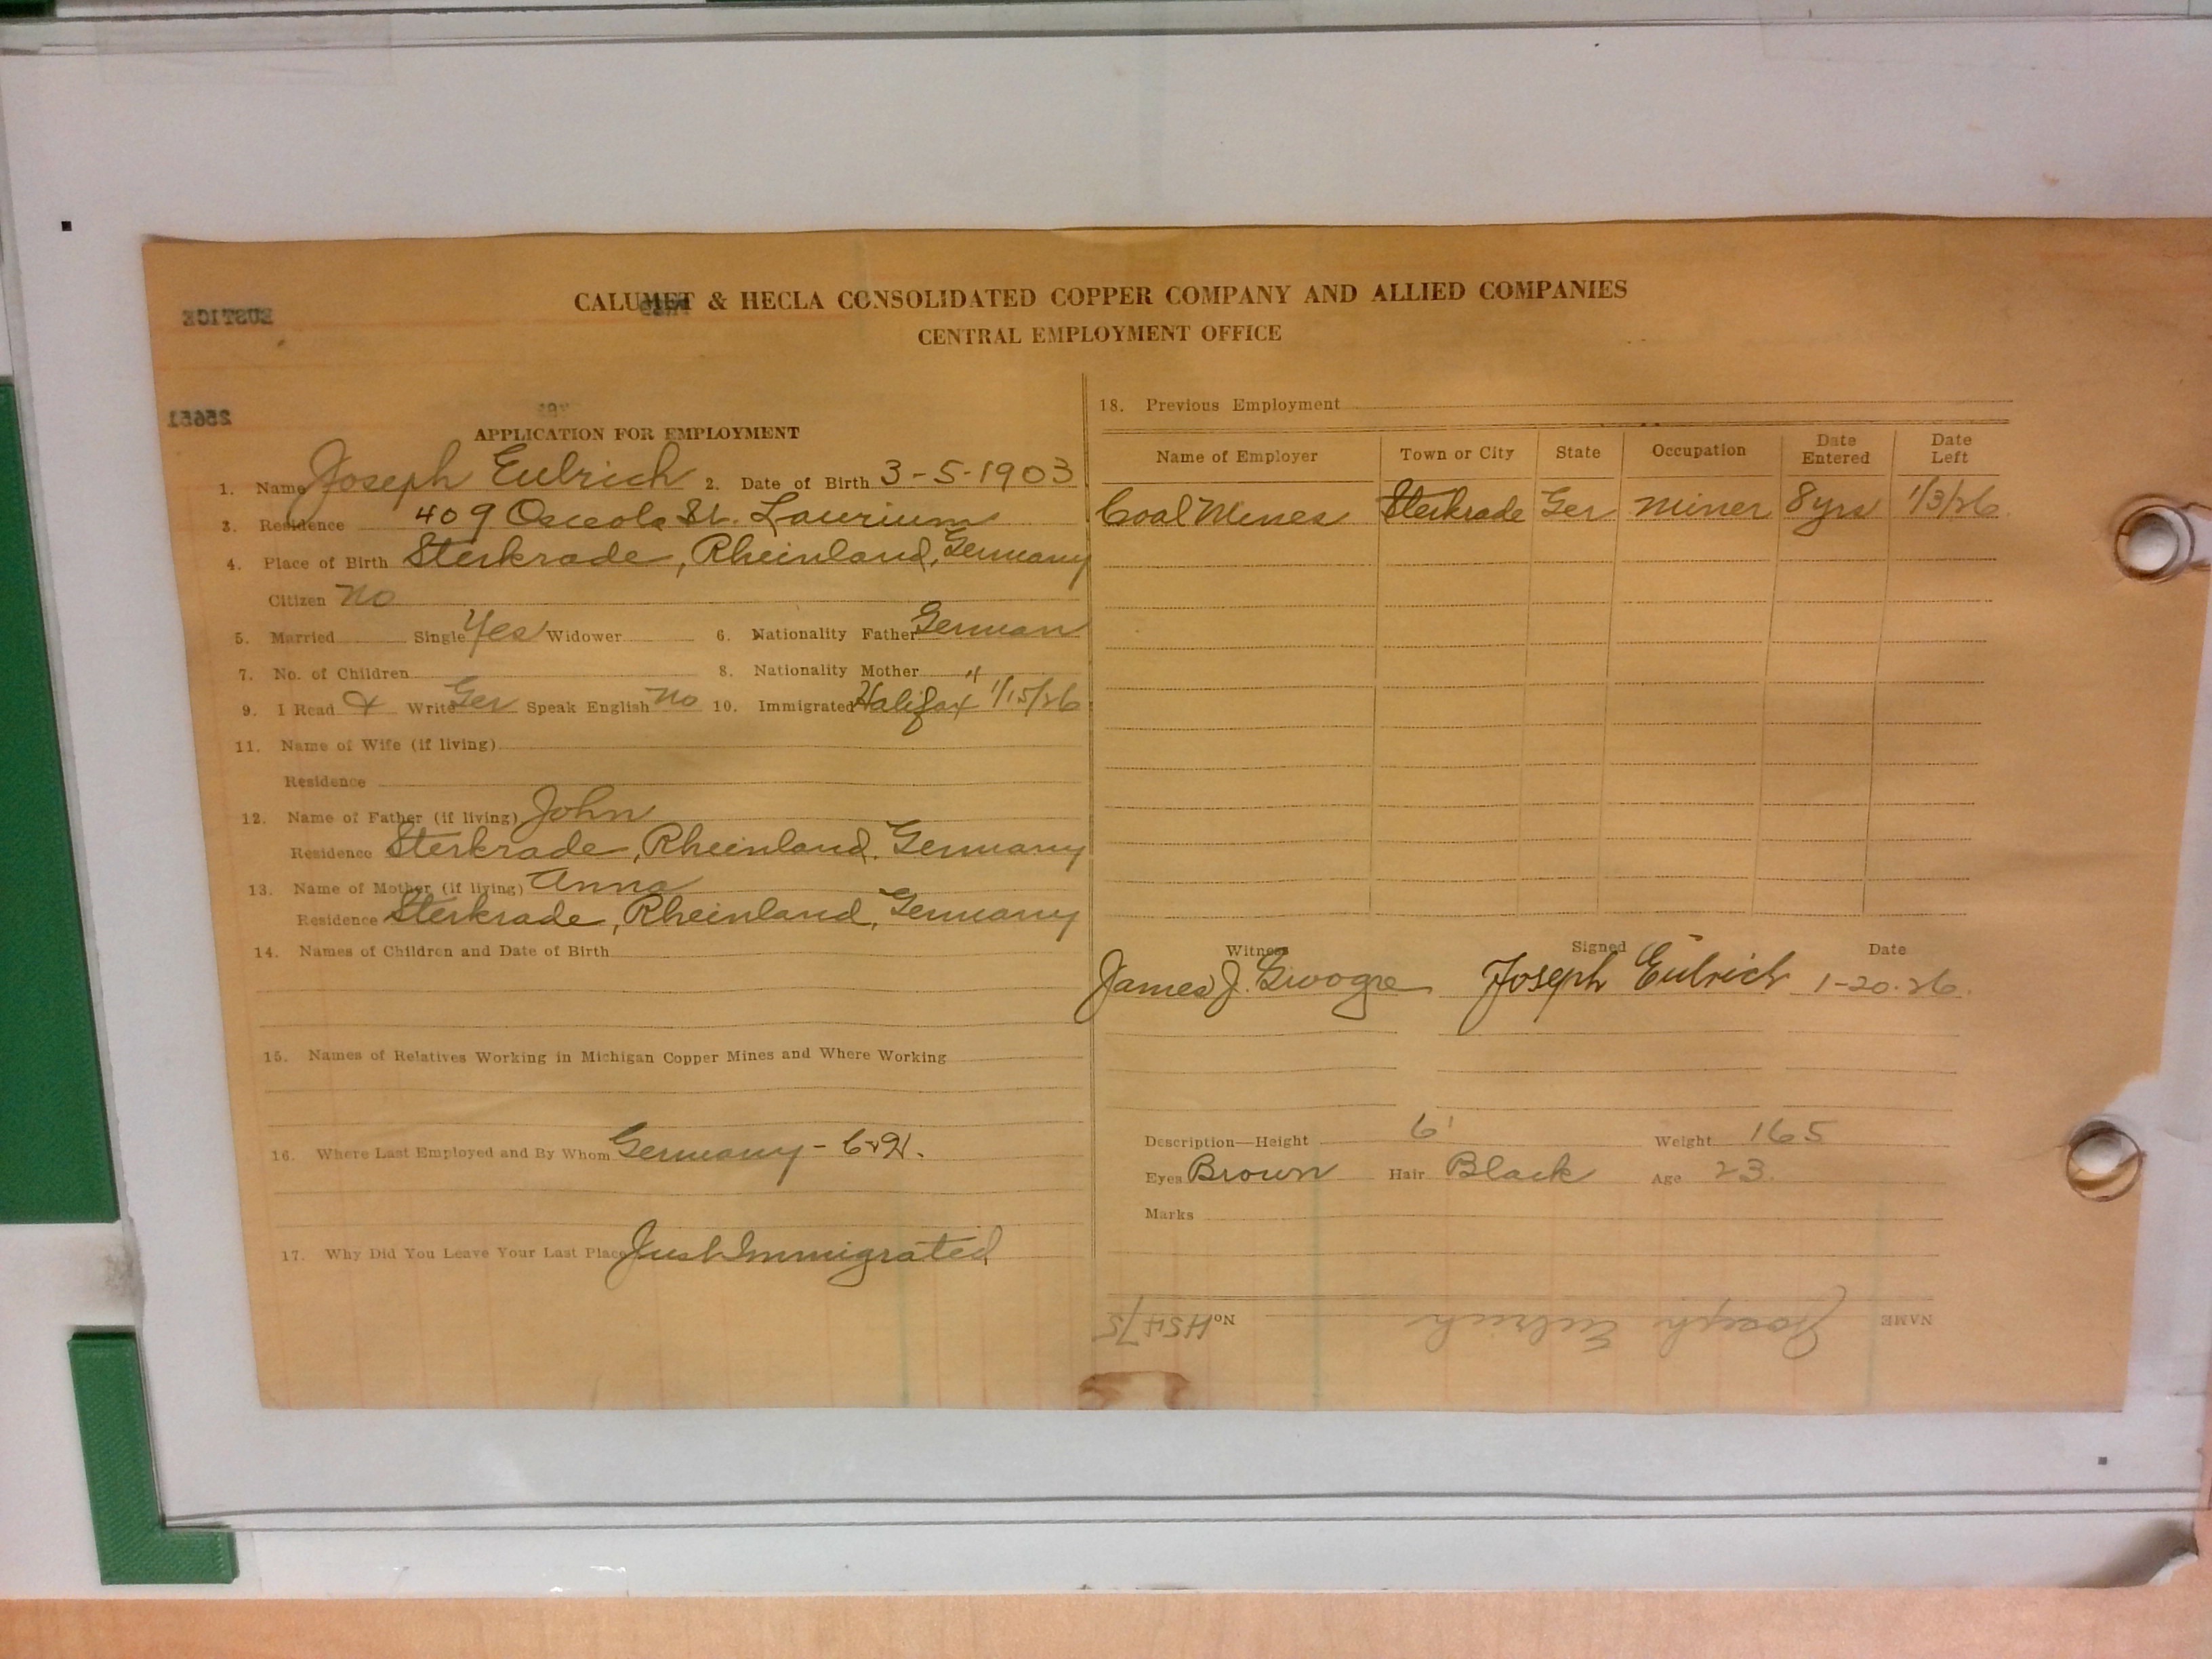 EUSTICE
CALUMET & HECLA CONSOLIDATED COPPER COMPANY AND ALLIED COMPANIES
CENTRAL EMPLOYMENT OFFICE
25651
APPLICATION FOR EMPLOYMENT
1. Name Joseph Eulrich 2. Date of Birth 3-5-1903
3. Residence 409 Osceola St. Laurium
4. Place of Birth Sterkrade, Rheinland, Germany
Citizen No
5. Married Single Yes Widower 6. Nationality Father German
7. No. of Children 8. Nationality Mother "
9. I Read & Write Ger Speak English No 10. Immigrated Halifax 1/15/26
11. Name of Wife (if living)
Residence
12. Name of Father (if living) John
Residence Sterkrade, Rheinland, Germany
13. Name of Mother (if living) Anna
Residence Sterkrade, Rheinland, Germany
14. Names of Children and Date of Birth
15. Names of Relatives Working in Michigan Copper Mines and Where Working
16. Where Last Employed and By Whom Germany -
17. Why Did You Leave Your Last Place Just Immigrated
18. Previous Employment
Name of Employer Town or City State Occupation Date Entered Date Left
Coal Mines Sterkrade Ger Miner 8 yrs 1/3/26
Witness Signed Date
James J. Joseph Eulrich 1-20-26.
Description—Height 6' Weight 165
Eyes Brown Hair Black Age 23.
Marks
NAME Joseph Eulrich No.